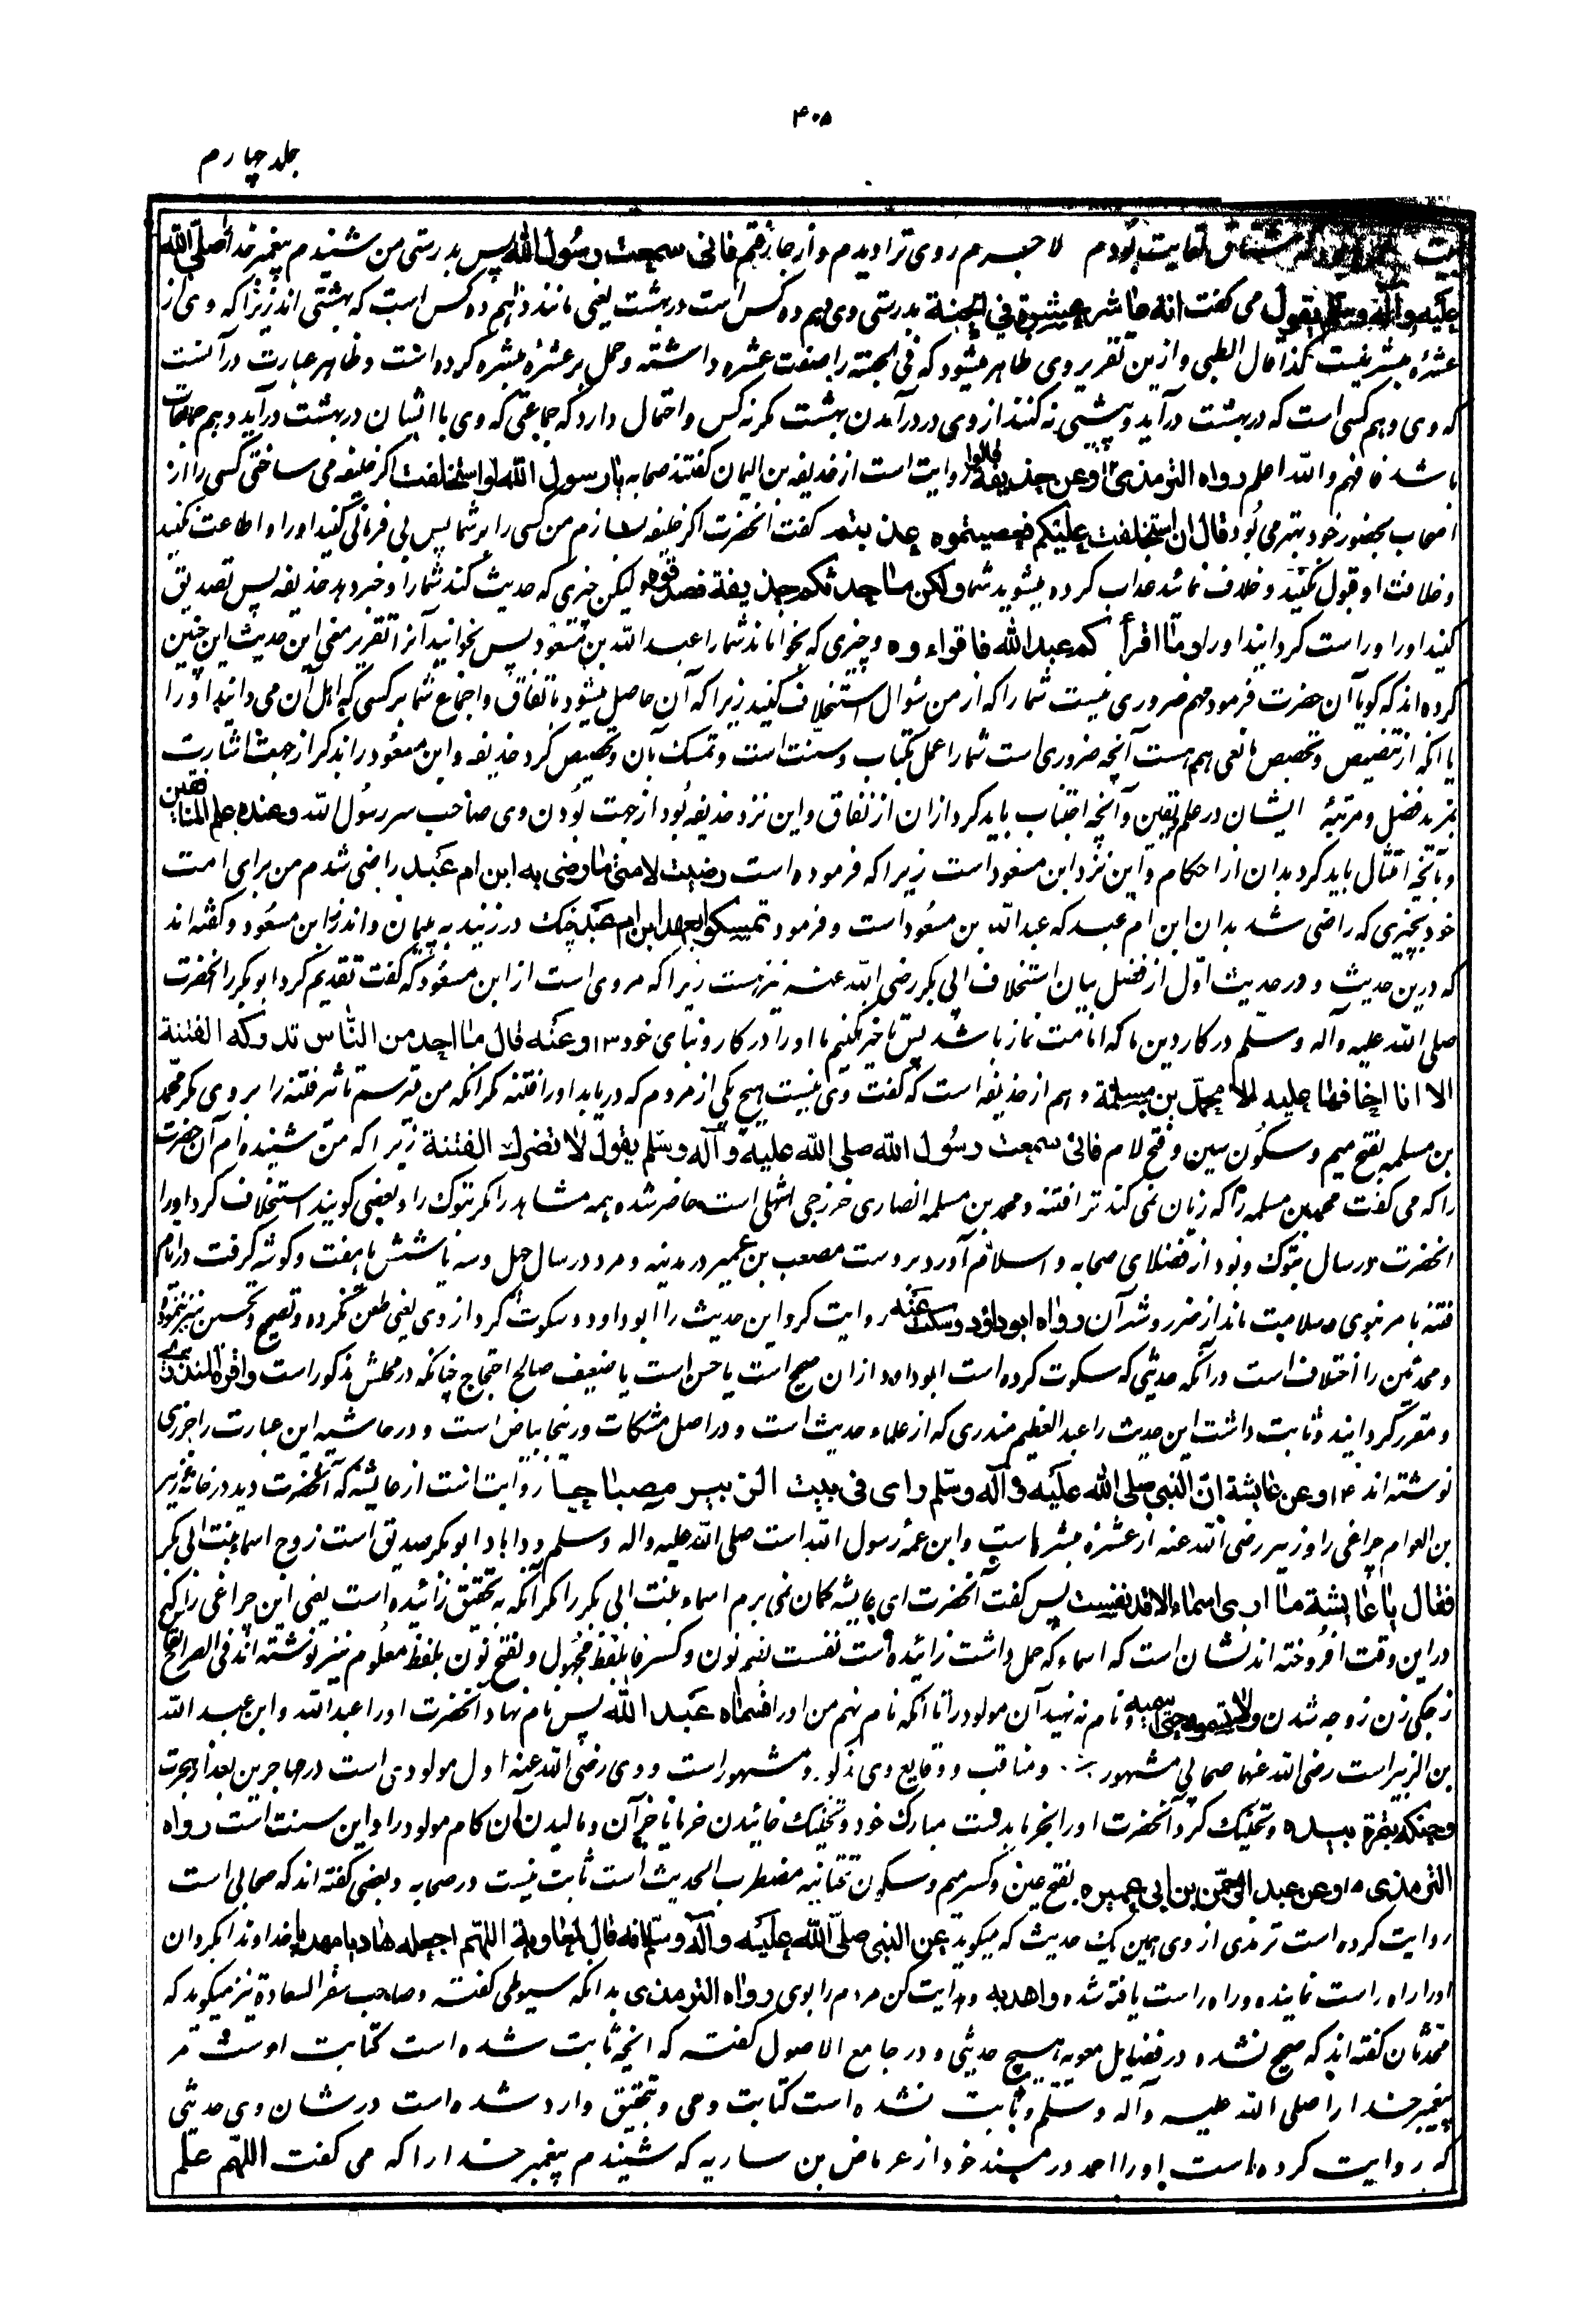 ۴۰۵
جلد چهارم
مشتاق لقایت بودم لاجرم روی ترا دیدم و از جا رفتم فانی سمعت رسول الله پس بدرستی من شنیدم پیغمبر خدا صلی الله
علیه و آله وسلم یقول می گفت انه عاشر عشرة فی الجنة بدرستی وی دهم ده کس است در بهشت یعنی مانند دهم ده کس است که بهشتی اند زیرا که وی از
عشرهٔ مبشره نیست کذا قال الطیبی و ازین تقریر وی ظاهر میشود که فی الجنة را صفت عشره داشته و حمل بر عشرهٔ مبشره کرده است و ظاهر عبارت در آنست
که وی دهم کسی است که در بهشت در آید و پیشی نه کنند از وی در درآمدن بهشت مگر نه کس و احتمال دارد که جماعتی که وی با ایشان در بهشت درآید دهم جماعات
باشد فافهم والله اعلم رواه الترمذی ۱۲ وعن حذیفة قالوا روایت است از حذیفه بن الیمان گفتند صحابه یا رسول الله لو استخلفت اگر خلیفه می ساختی کسی را از
اصحاب بحضور خود بهتر می بود قال ان استخلفت علیکم فعصیتموه عذبتم گفت آنحضرت اگر خلیفه سازم من کسی را بر شما پس بی فرمانی کنید او را و اطاعت نکنید
و خلافت او قبول نکنید و خلاف نمائید عذاب کرده میشوید شما ولکن ما حدثکم حذیفة فصدقوه لیکن چیزی که حدیث کند شما را و خبر دهد حذیفه پس تصدیق
کنید او را و راست گردانید او را وما اقرأکم عبد الله فاقراءوه و چیزی که بخواناند شما را عبد الله بن مسعود پس بخوانید آنرا تقریر معنی این حدیث این چنین
کرده اند که گویا آن حضرت فرمود مهم ضروری نیست شما را که از من سوال استخلاف کنید زیرا که آن حاصل میشود باتفاق و اجماع شما بر کسی که اهل آن می دانید او را
با آنکه از تنصیص و تخصیص مانعی هم هست آنچه ضروری است شما را عمل بکتاب و سنت است و تمسک بآن و تخصیص کرد حذیفه و ابن مسعود را بذکر از جهت اشارت
بمزید فضل و مرتبهٔ ایشان در علم یقین و آنچه اجتناب باید کرد ازان از نفاق و این نزد حذیفه بود از جهت بودن وی صاحب سر رسول الله وعنده علم المنافقین
و بآنچه امتثال باید کرد بدان از احکام و این نزد ابن مسعود است زیرا که فرموده است رضیت لامتی ما رضی به ابن ام عبد راضی شدم من برای امت
خود بچیزی که راضی شد بدان ابن ام عبد که عبد الله بن مسعود است و فرمود تمسکوا بعهد ابن ام عبد چنگ در زنید به پیمان و اندرز ابن مسعود و گفته اند
که درین حدیث و در حدیث اول از فضل بیان استخلاف ابی بکر رضی الله عنه نیز هست زیرا که مروی است از ابن مسعود که گفت تقدیم کرد ابوبکر را آنحضرت
صلی الله علیه و آله وسلم در کار دین ما که امامت نماز باشد پس تاخیر نکنیم ما او را در کار دنیای خود ۱۳ وعنه قال ما احد من الناس تدرکه الفتنة
الا انا اخافها علیه الا محمد بن مسلمة و هم از حذیفه است که گفت وی نیست هیچ یکی از مردم که دریابد او را فتنه مگر آنکه من ترسم تاثیر فتنه را بر وی مگر محمد
بن مسلمه بفتح میم و سکون سین و فتح لام فانی سمعت رسول الله صلی الله علیه و آله وسلم یقول لا تضرک الفتنة زیرا که من شنیده ام آن حضرت
را که می گفت محمد بن مسلمه را که زیان نمی کند ترا فتنه و محمد بن مسلمه انصاری خزرجی اشهلی است حاضر شده همه مشاهد را مگر تبوک را و بعضی گویند استخلاف کرد او را
آنحضرت در سال تبوک و بود از فضلای صحابه و اسلام آورد بر دست مصعب بن عمیر در مدینه و مرد در سال چهل و سه یا شش یا هفت و گوشه گرفت در ایام
فتنه بامر نبوی و سلامت ماند از ضرر و شر آن رواه ابو داؤد وسکت عنه روایت کرد این حدیث را ابو داود و سکوت کرد از وی یعنی طعن نکرده و تصحیح و تحسین نیز ننموده
و محدثین را اختلاف است در آنکه حدیثی که سکوت کرده است ابوداود ازان صحیح است یا حسن است یا ضعیف صالح احتجاج چنانکه در محلش مذکور است واقره المنذری
و مقرر گردانید و ثابت داشت این حدیث را عبد العظیم منذری که از علماء حدیث است و در اصل مشکات در ینجا بیاض است و در حاشیه این عبارت را جزری
نوشته اند ۱۴ وعن عایشة ان النبی صلی الله علیه و آله وسلم رای فی بیت الزبیر مصباحا روایت است از عایشه که آنحضرت دید در خانهٔ زبیر
بن العوام چراغی را و زبیر رضی الله عنه از عشرهٔ مبشره است و ابن عمهٔ رسول الله است صلی الله علیه و اله وسلم و داماد ابو بکر صدیق است زوج اسماء بنت ابی بکر
فقال یا عایشة ما اری اسماء الا قد نفست پس گفت آنحضرت ای عایشه گمان نمی برم اسماء بنت ابی بکر را مگر آنکه به تحقیق زائیده است یعنی این چراغی را که
در این وقت افروخته اند نشان است که اسماء که حمل داشت زائیده است نفست بضم نون و کسر فا بلفظ مجهول و بفتح نون بلفظ معلوم نیز نوشته اند فی الصراح
زچگی زن زوجه شدن ولا تسموه حتی اسمیه و نام نه نهید آن مولود را تا آنکه نام نهم من او را فسماه عبد الله پس نام نهاد آنحضرت او را عبدالله و این عبد الله
بن الزبیر است رضی الله عنهما صحابی مشهور و مناقب و وقایع وی مذکور و مشهور است و وی رضی الله عنه اول مولودی است در مهاجرین بعد از هجرت
وحنکه بتمرة بیده و تحنیک کرد آنحضرت او را بخرما بدست مبارک خود و تحنیک خائیدن خرما یا جز آن و مالیدن آن کام مولود را و این سنت است رواه
الترمذی ۱۵ وعن عبد الرحمن بن ابی عمیره بفتح عین و کسر میم و سکون تحتانیه مضطرب الحدیث است ثابت نیست در صحابه و بعضی گفته اند که صحابی است
روایت کرده است ترمذی از وی همین یک حدیث که میگوید عن النبی صلی الله علیه و آله وسلم انه قال لمعاویة اللهم اجعله هادیا مهدیا خداوندا بگردان
او را راه راست نماینده و راه راست یافته شده واهد به و هدایت کن مردم را بوی رواه الترمذی بدانکه سیوطی گفته و صاحب سفر السعادة نیز میگوید که
محدثان گفته اند که صحیح نشده در فضایل معویه هیچ حدیثی و در جامع الاصول گفته که آنچه ثابت شده است کتابت اوست مر
پیغمبر خدا را صلی الله علیه و آله وسلم و ثابت نشده است کتابت وحی و بتحقیق وارد شده است در شان وی حدیثی
که روایت کرده است او را احمد در مسند خود از عرباض بن ساریه که شنیدم پیغمبر خدا را که می گفت اللهم علم